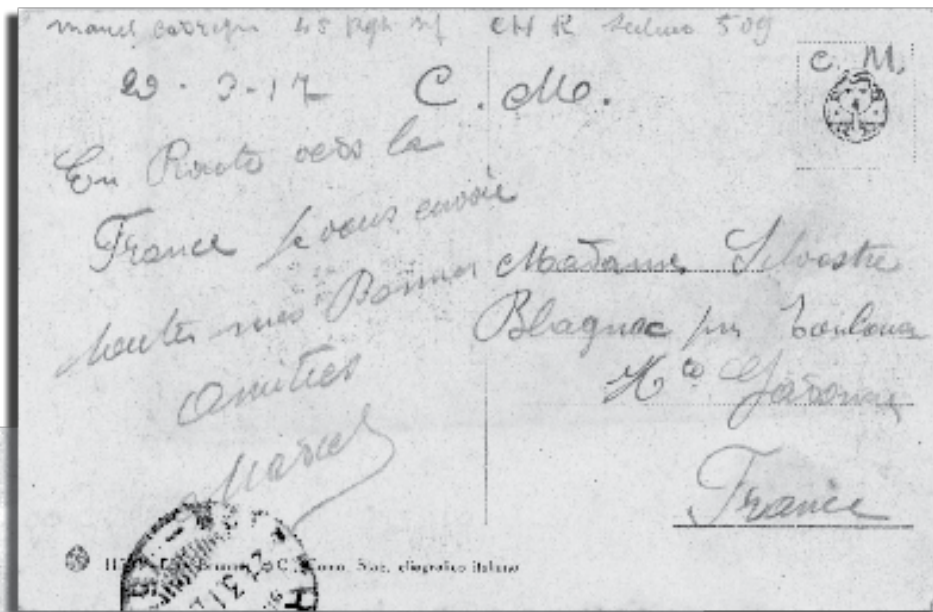 marcel 45 CHR secteur 509
29 - 3 - 17 C. M.
C. M.
En Route vers la
France je vous envoie
toutes mes Bonnes
Amitiés
Marcel
Madame Silvestre
Blagnac par Toulouse
Hte Garonne
France
C. Stab. eliografico italiano